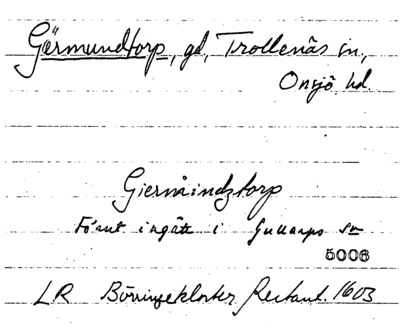 Gärmundtorp, gd, Trollenäs sn,
Onsjö hd.
Giermindztorp
Förut ingått i Gullarps sn
5006
LR Börringekloster Restant. 1603